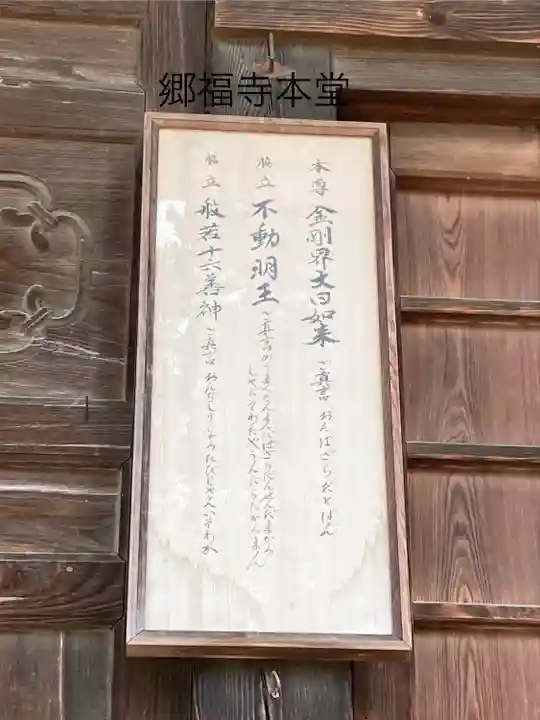 郷福寺本堂
本尊 金剛界大日如来 ご真言 おんばざらだとばん
脇立 不動明王 ご真言 のうまくさんまんだばざらだんせんだまかろ
しやだそわたやうんたらたかんまん
脇立 般若十六善神 ご真言